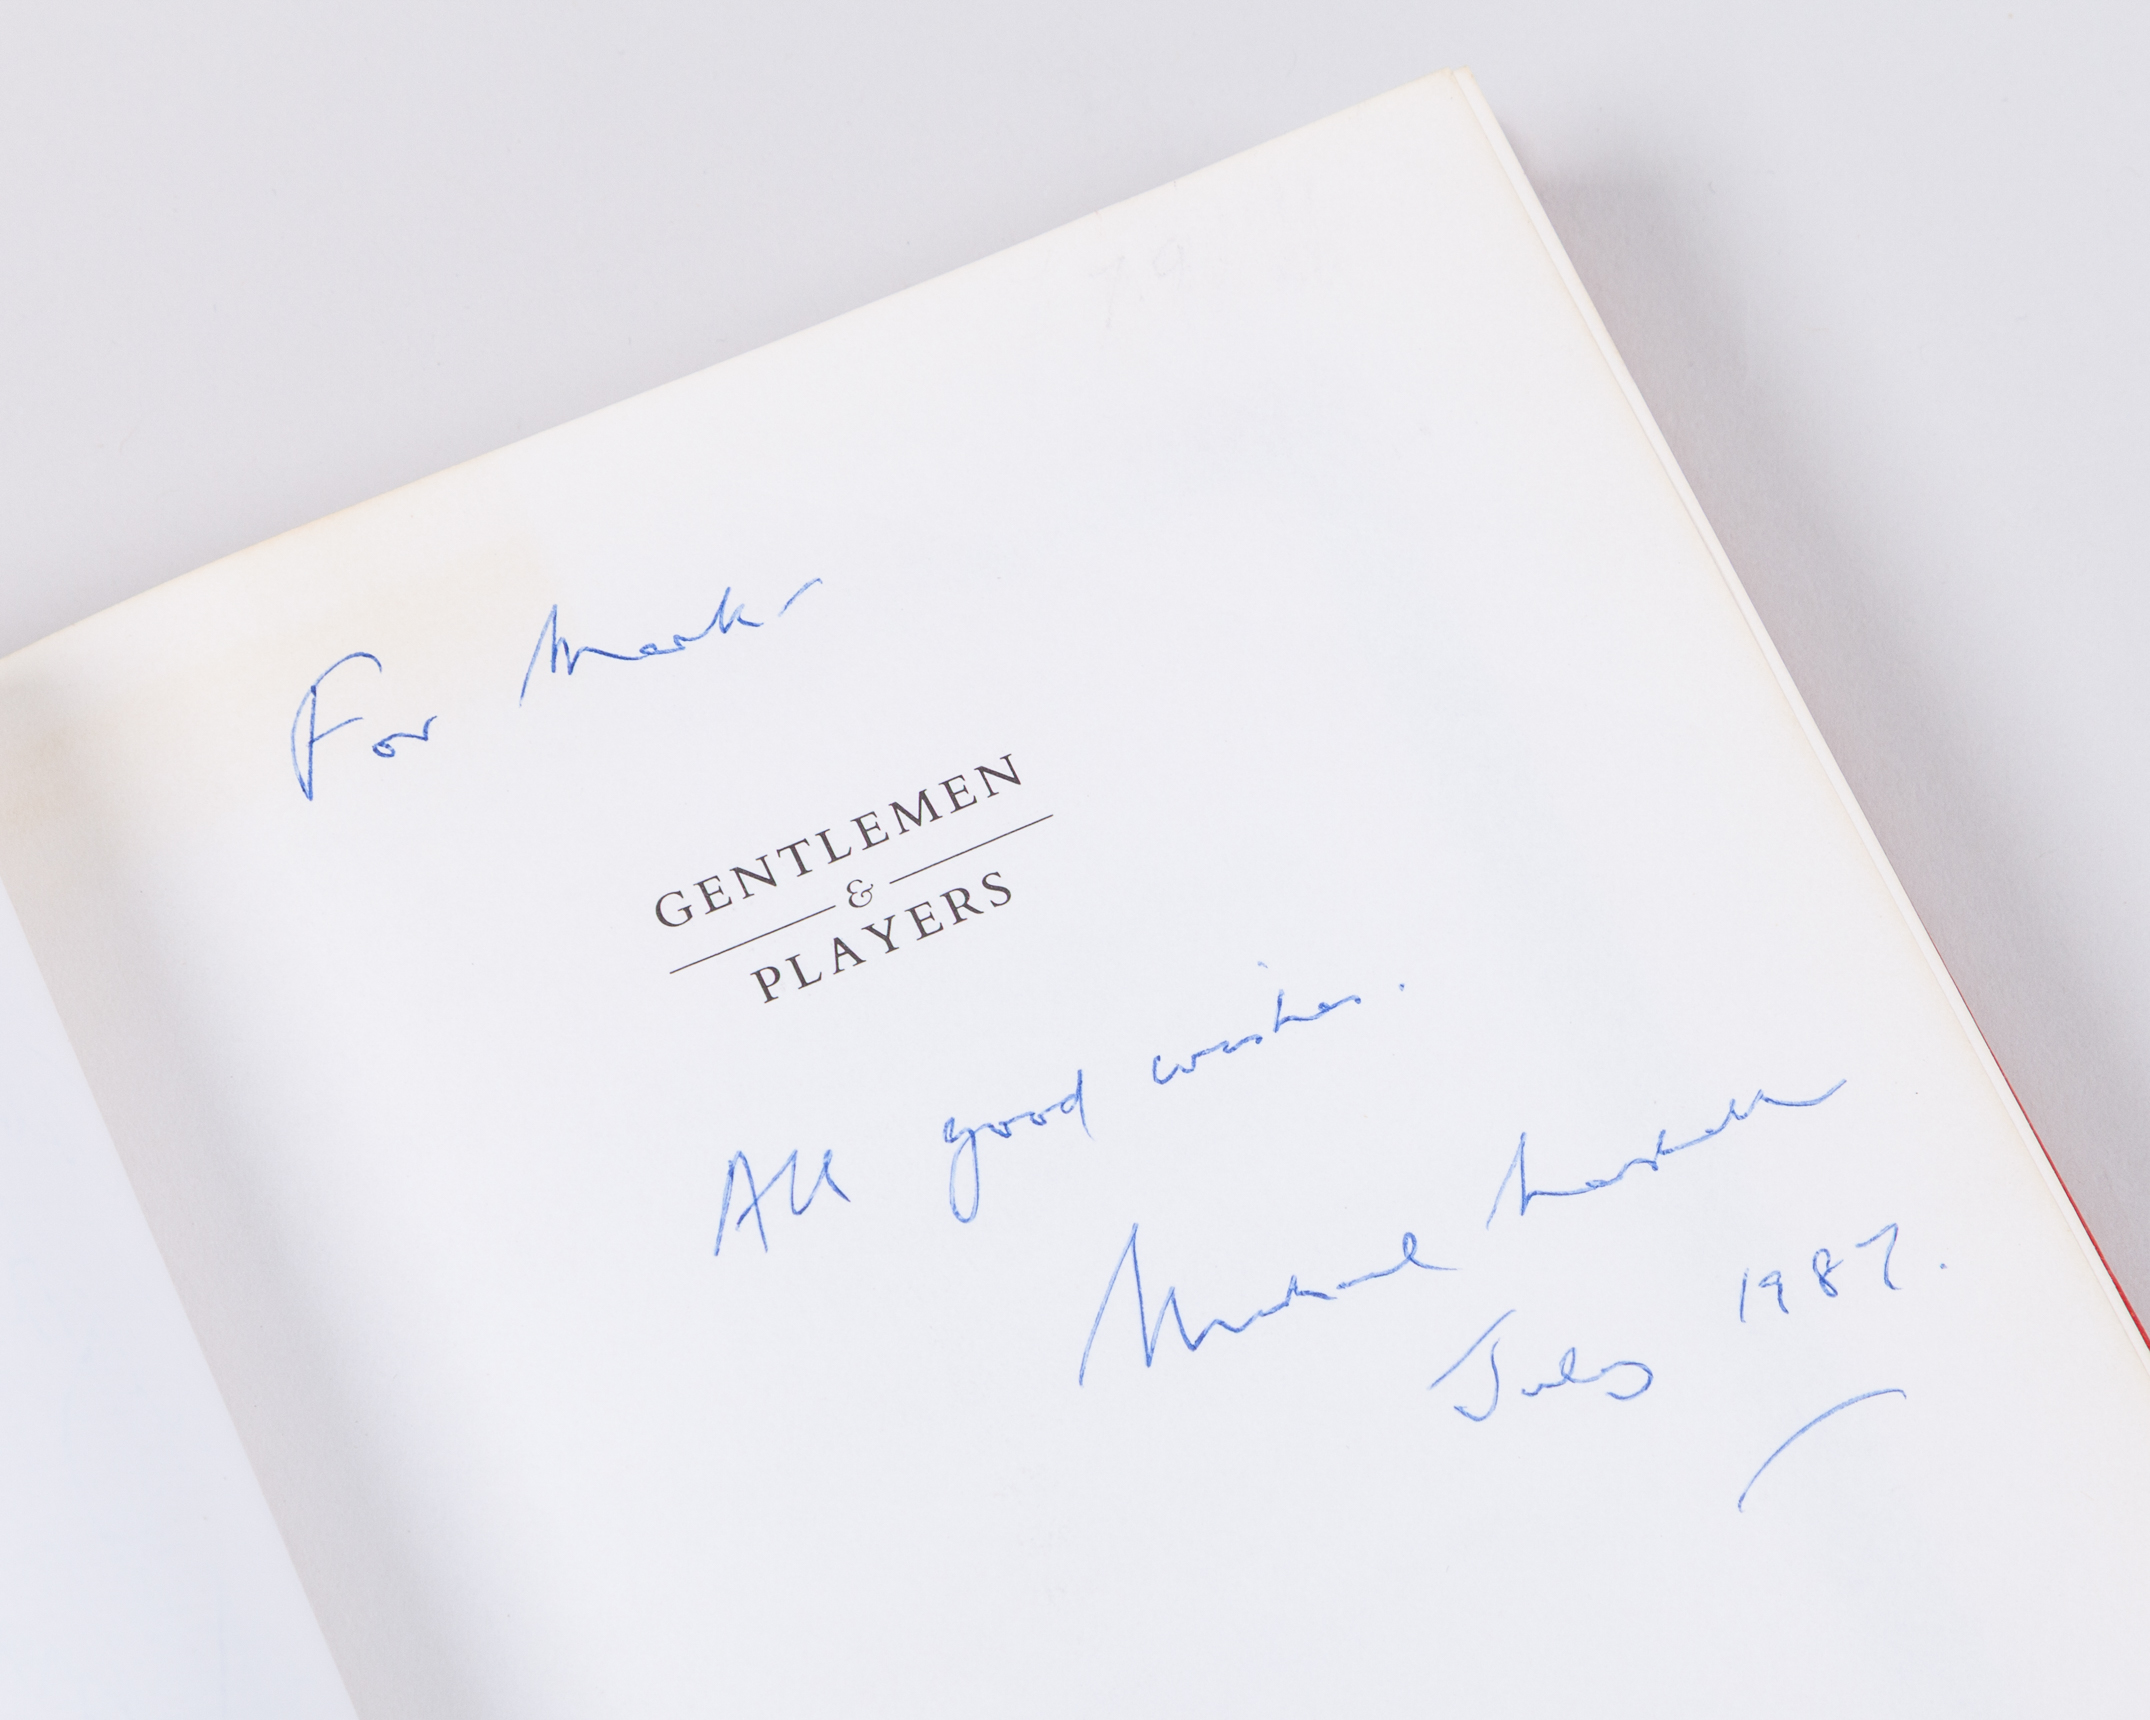 For Mark –
GENTLEMEN
&
PLAYERS
All good wishes.
Michael Marshall
July 1987.